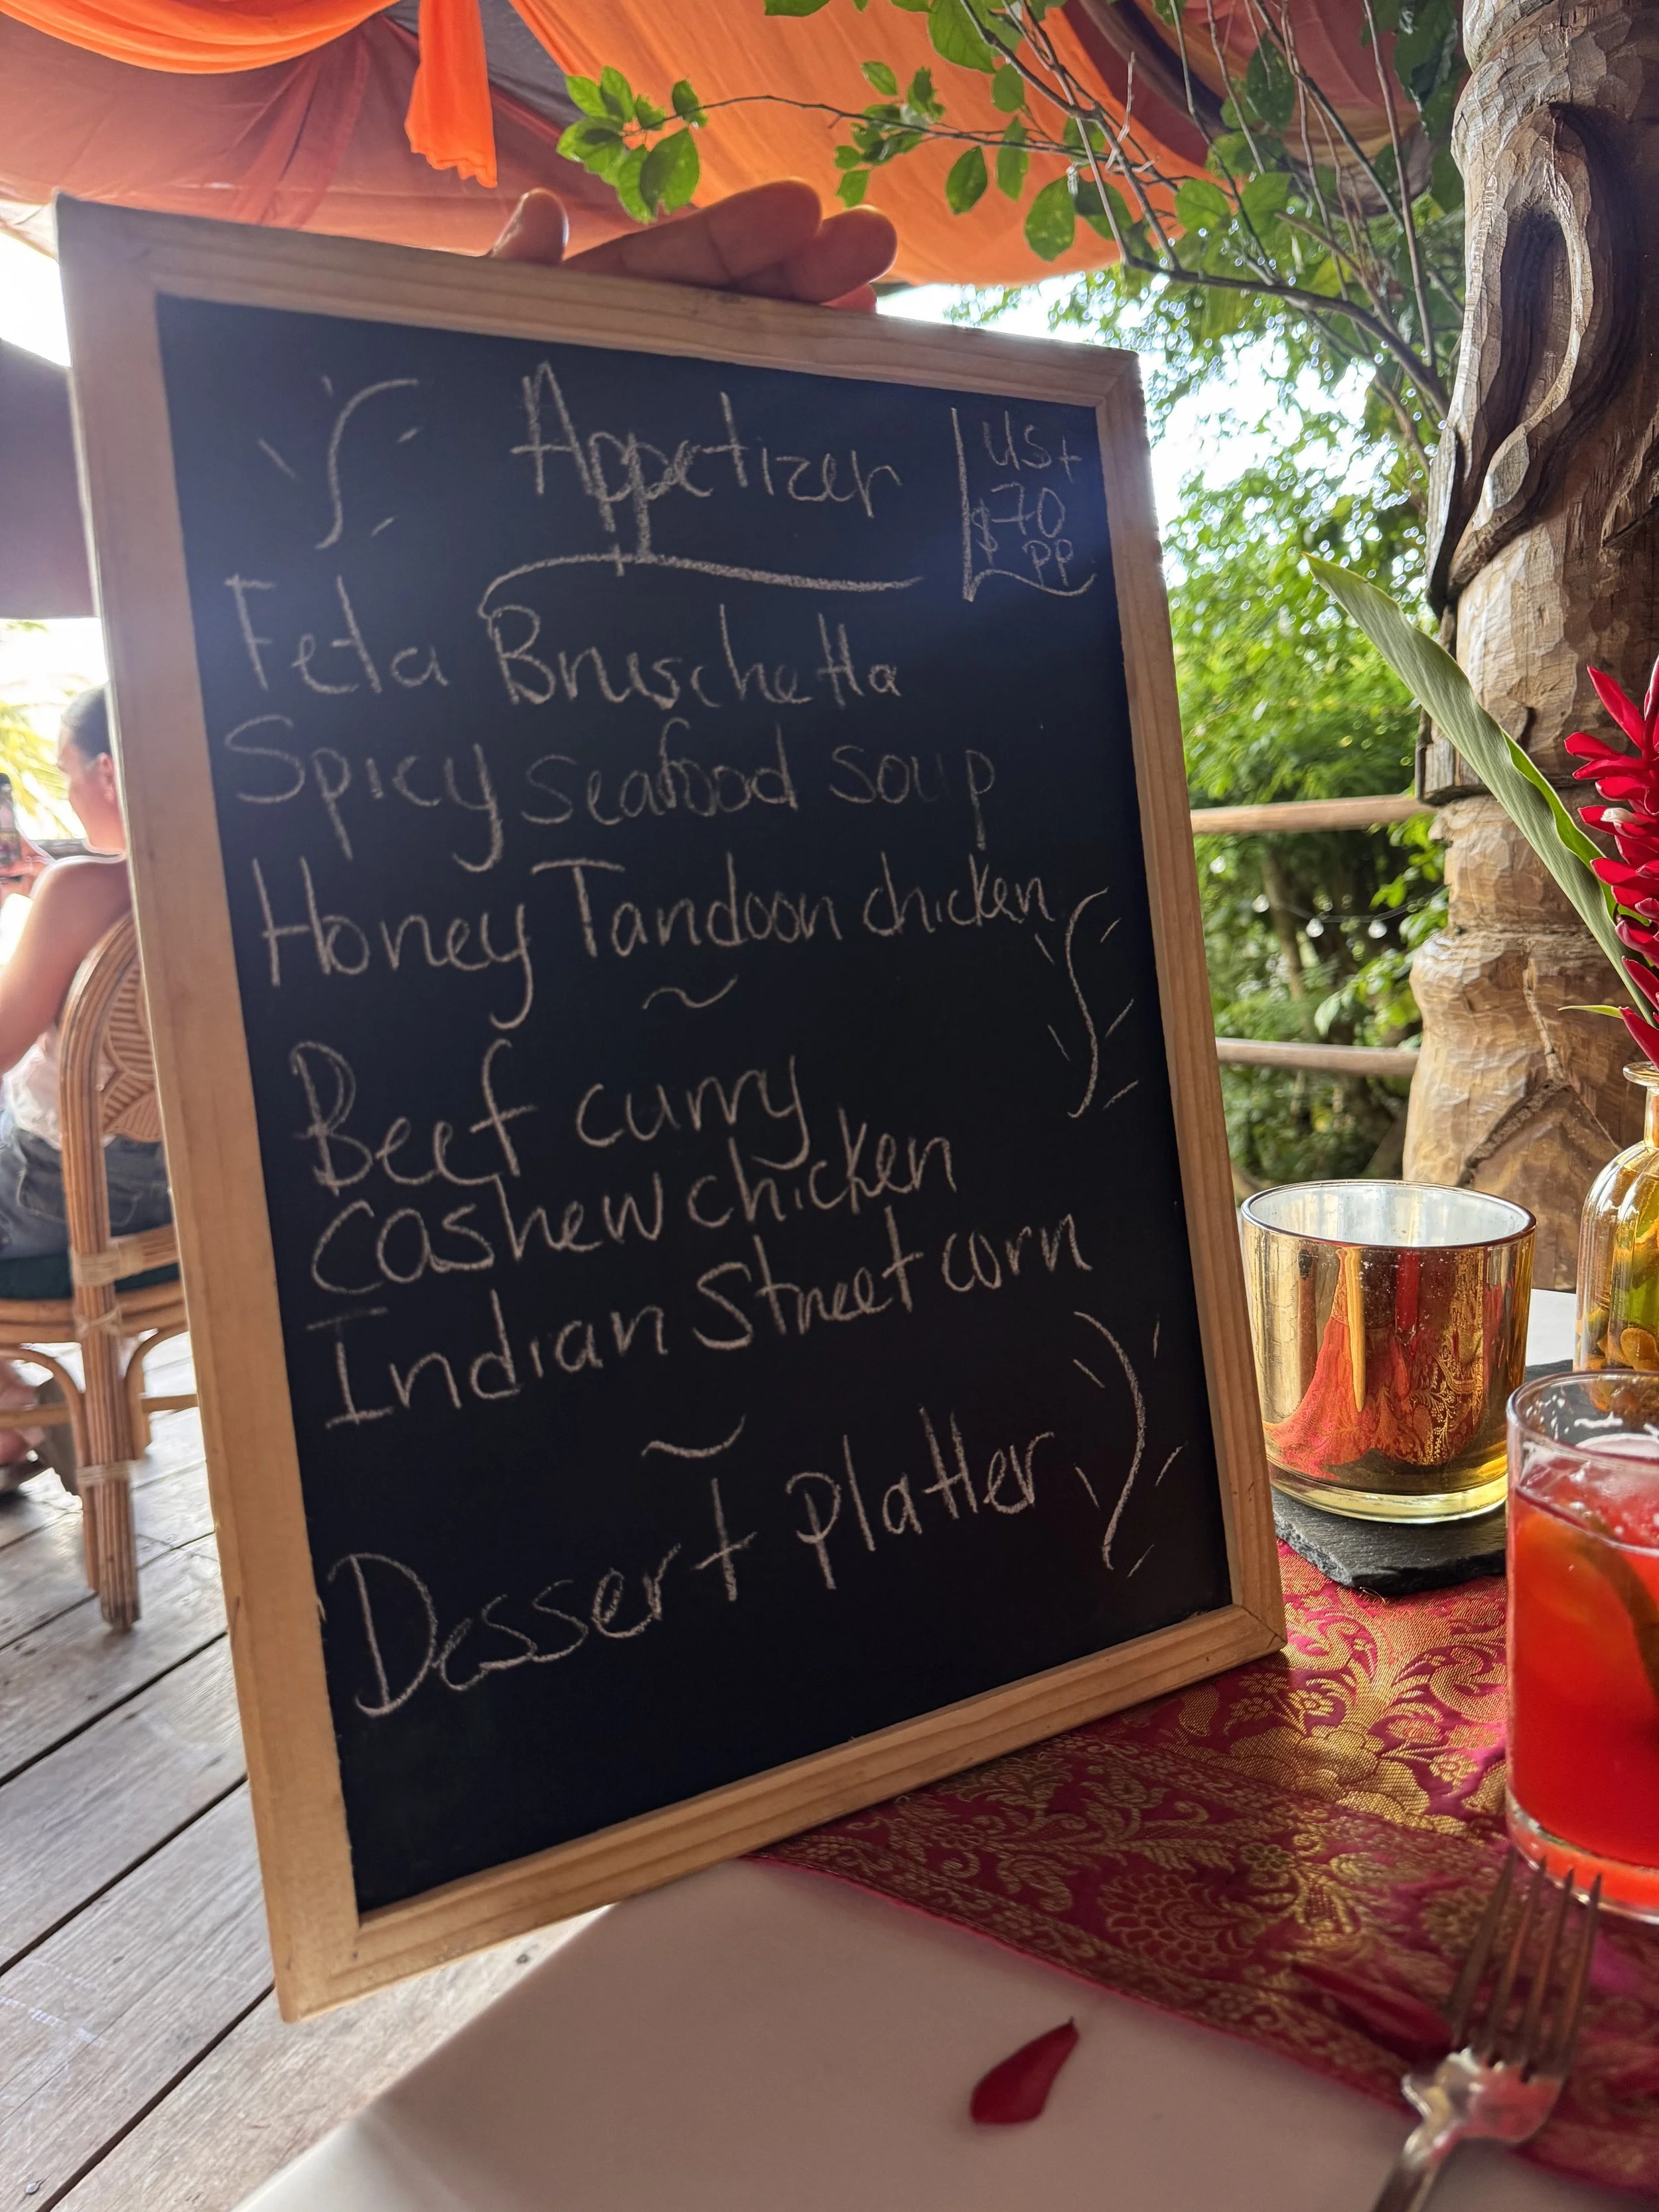 Appetizer
US+
$70
PP
Feta Bruschetta
Spicy seafood soup
Honey Tandoori chicken
~
Beef curry
Cashew chicken
Indian Street corn
~
Dessert platter